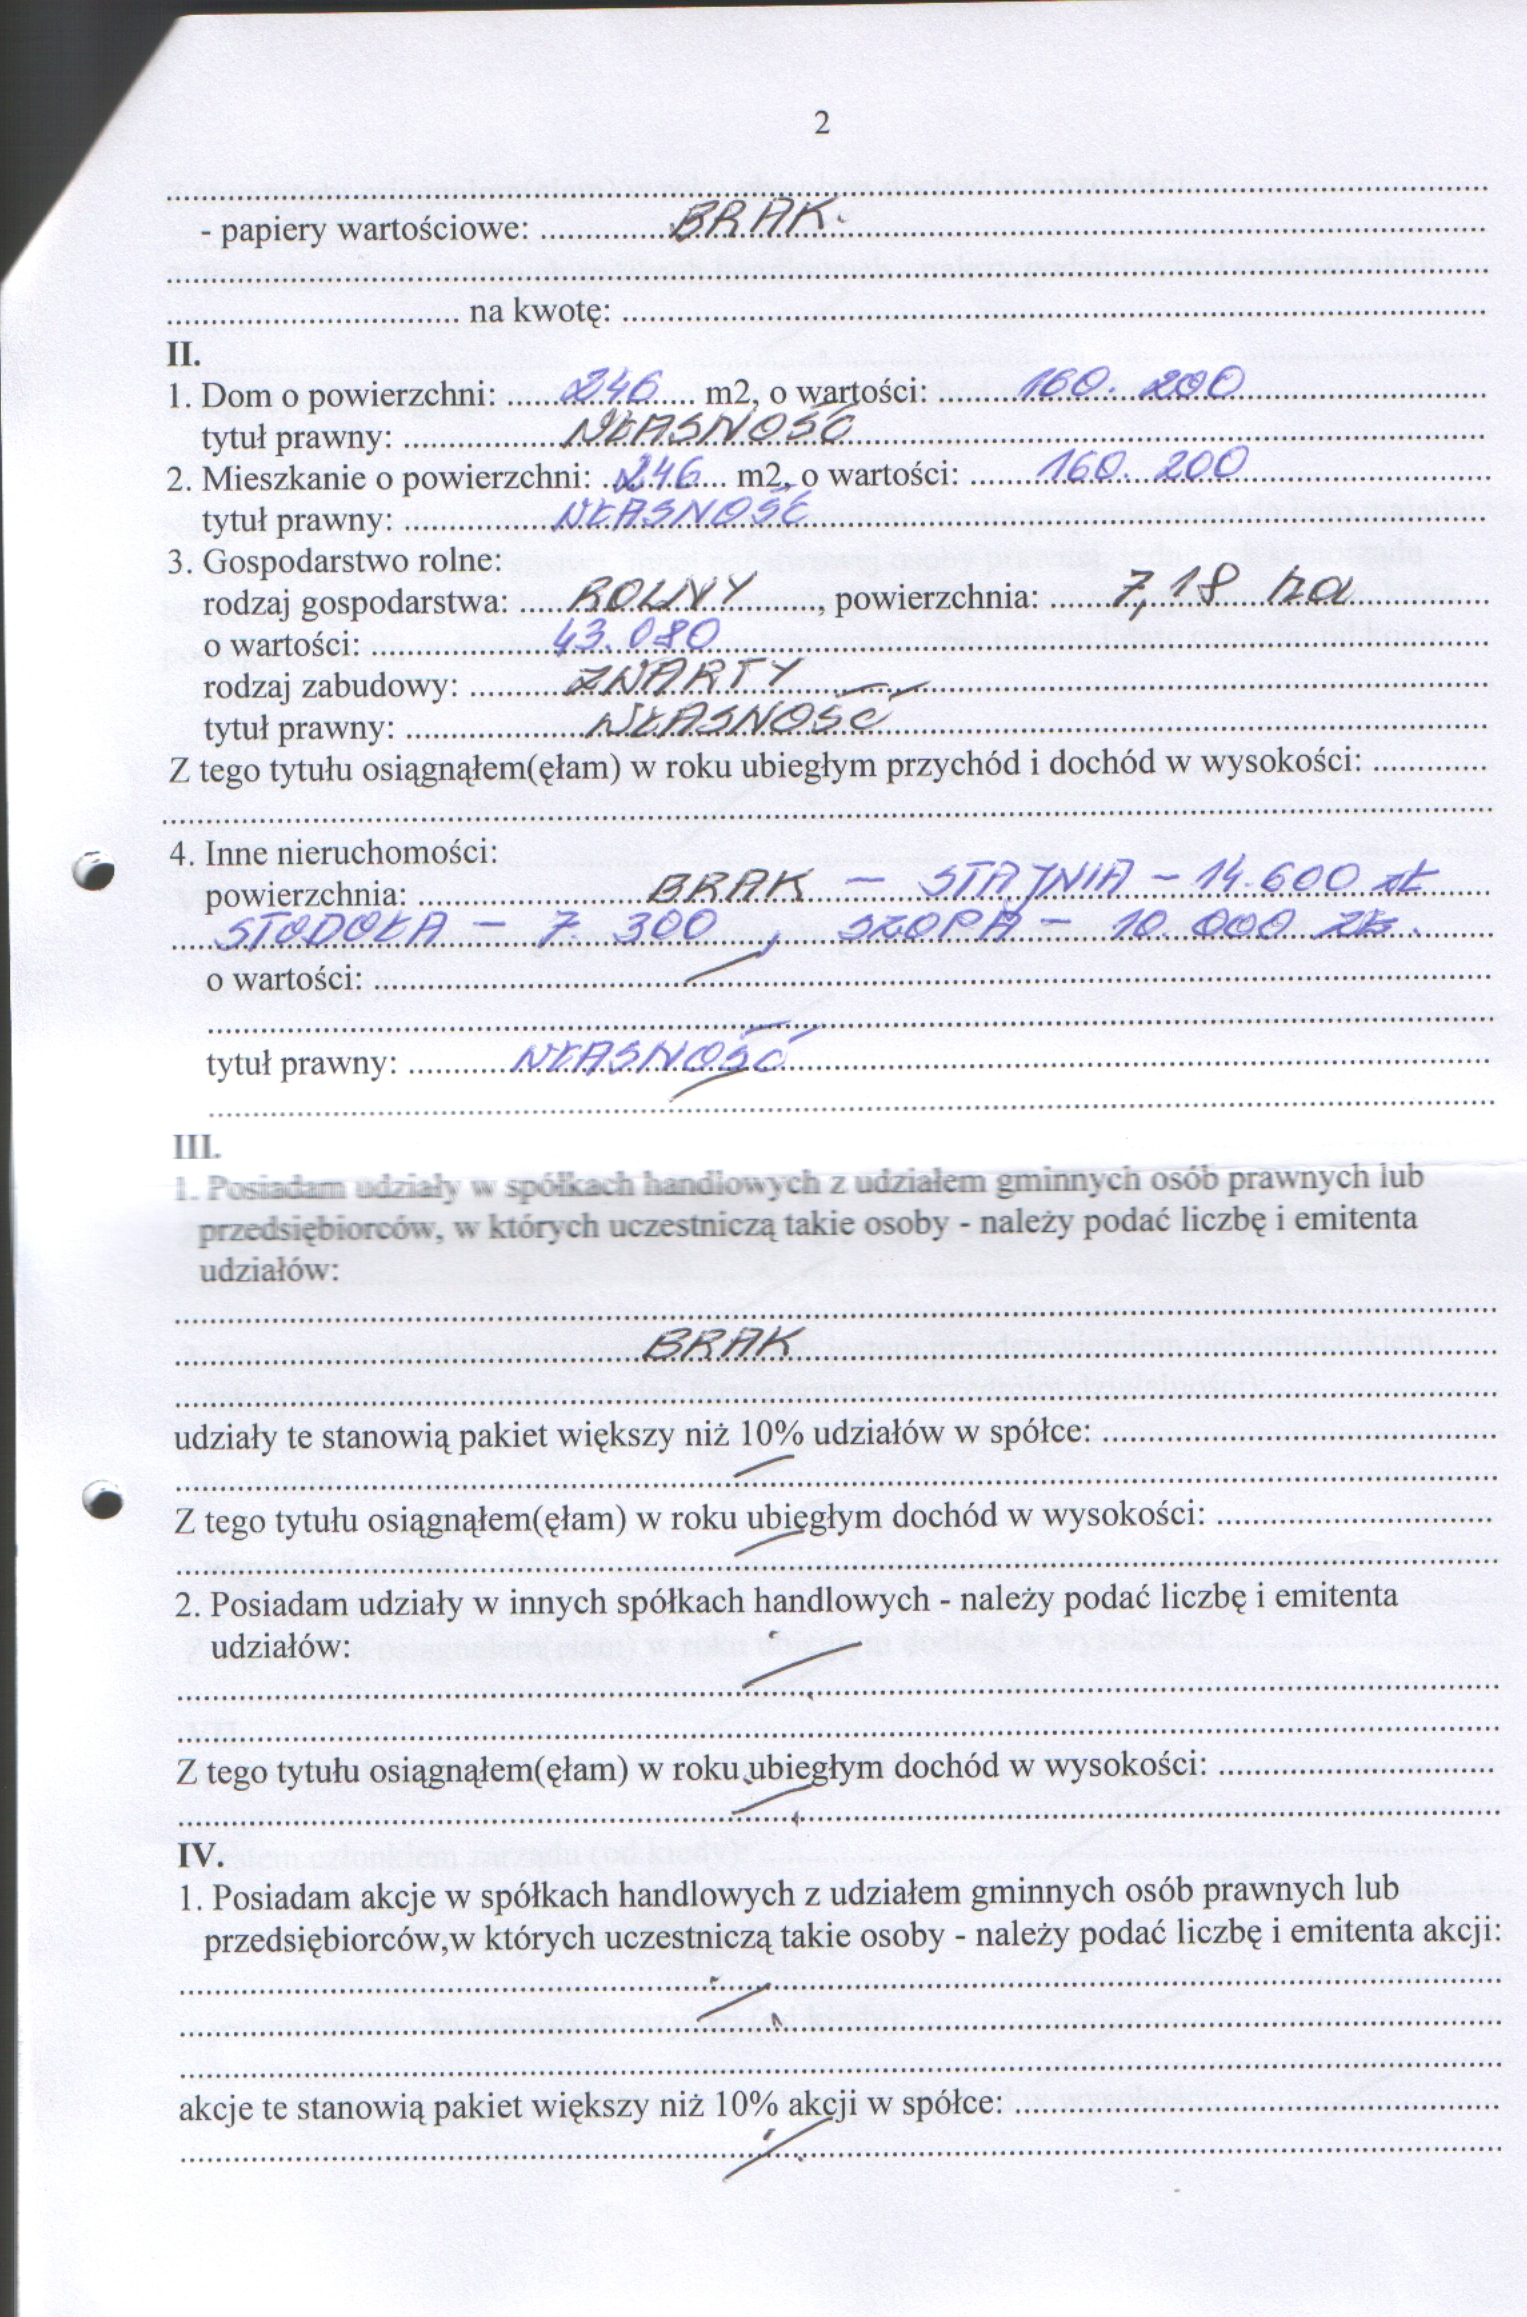 2
- papiery wartościowe: BRAK.
na kwotę:
II.
1. Dom o powierzchni: 246 m2, o wartości: 160.200
tytuł prawny: WŁASNOŚĆ
2. Mieszkanie o powierzchni: 246 m2, o wartości: 160.200
tytuł prawny: WŁASNOŚĆ
3. Gospodarstwo rolne:
rodzaj gospodarstwa: ROLNY, powierzchnia: 7,18 ha
o wartości: 43.080
rodzaj zabudowy: ZWARTY
tytuł prawny: WŁASNOŚĆ
Z tego tytułu osiągnąłem(ęłam) w roku ubiegłym przychód i dochód w wysokości:
4. Inne nieruchomości:
powierzchnia: BRAK – STAJNIA – 14.600 zł
STODOŁA – 7.300, SZOPA – 10.000 zł.
o wartości:
tytuł prawny: WŁASNOŚĆ
III.
1. Posiadam udziały w spółkach handlowych z udziałem gminnych osób prawnych lub
przedsiębiorców, w których uczestniczą takie osoby - należy podać liczbę i emitenta
udziałów:
BRAK
udziały te stanowią pakiet większy niż 10% udziałów w spółce:
Z tego tytułu osiągnąłem(ęłam) w roku ubiegłym dochód w wysokości:
2. Posiadam udziały w innych spółkach handlowych - należy podać liczbę i emitenta
udziałów:
Z tego tytułu osiągnąłem(ęłam) w roku ubiegłym dochód w wysokości:
IV.
1. Posiadam akcje w spółkach handlowych z udziałem gminnych osób prawnych lub
przedsiębiorców,w których uczestniczą takie osoby - należy podać liczbę i emitenta akcji:
akcje te stanowią pakiet większy niż 10% akcji w spółce: